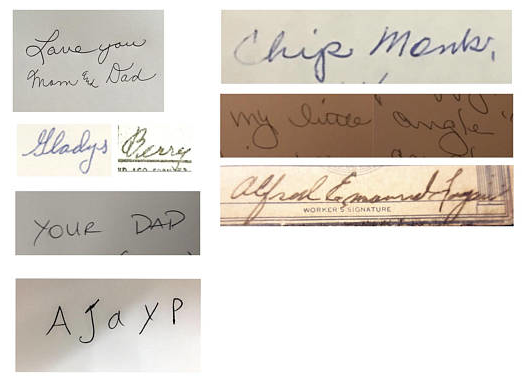 Love you
Mom & Dad
Gladys Berry
YOUR DAD
AJayP
Chip Monk,
my little angle"
Alfred
WORKER'S SIGNATURE